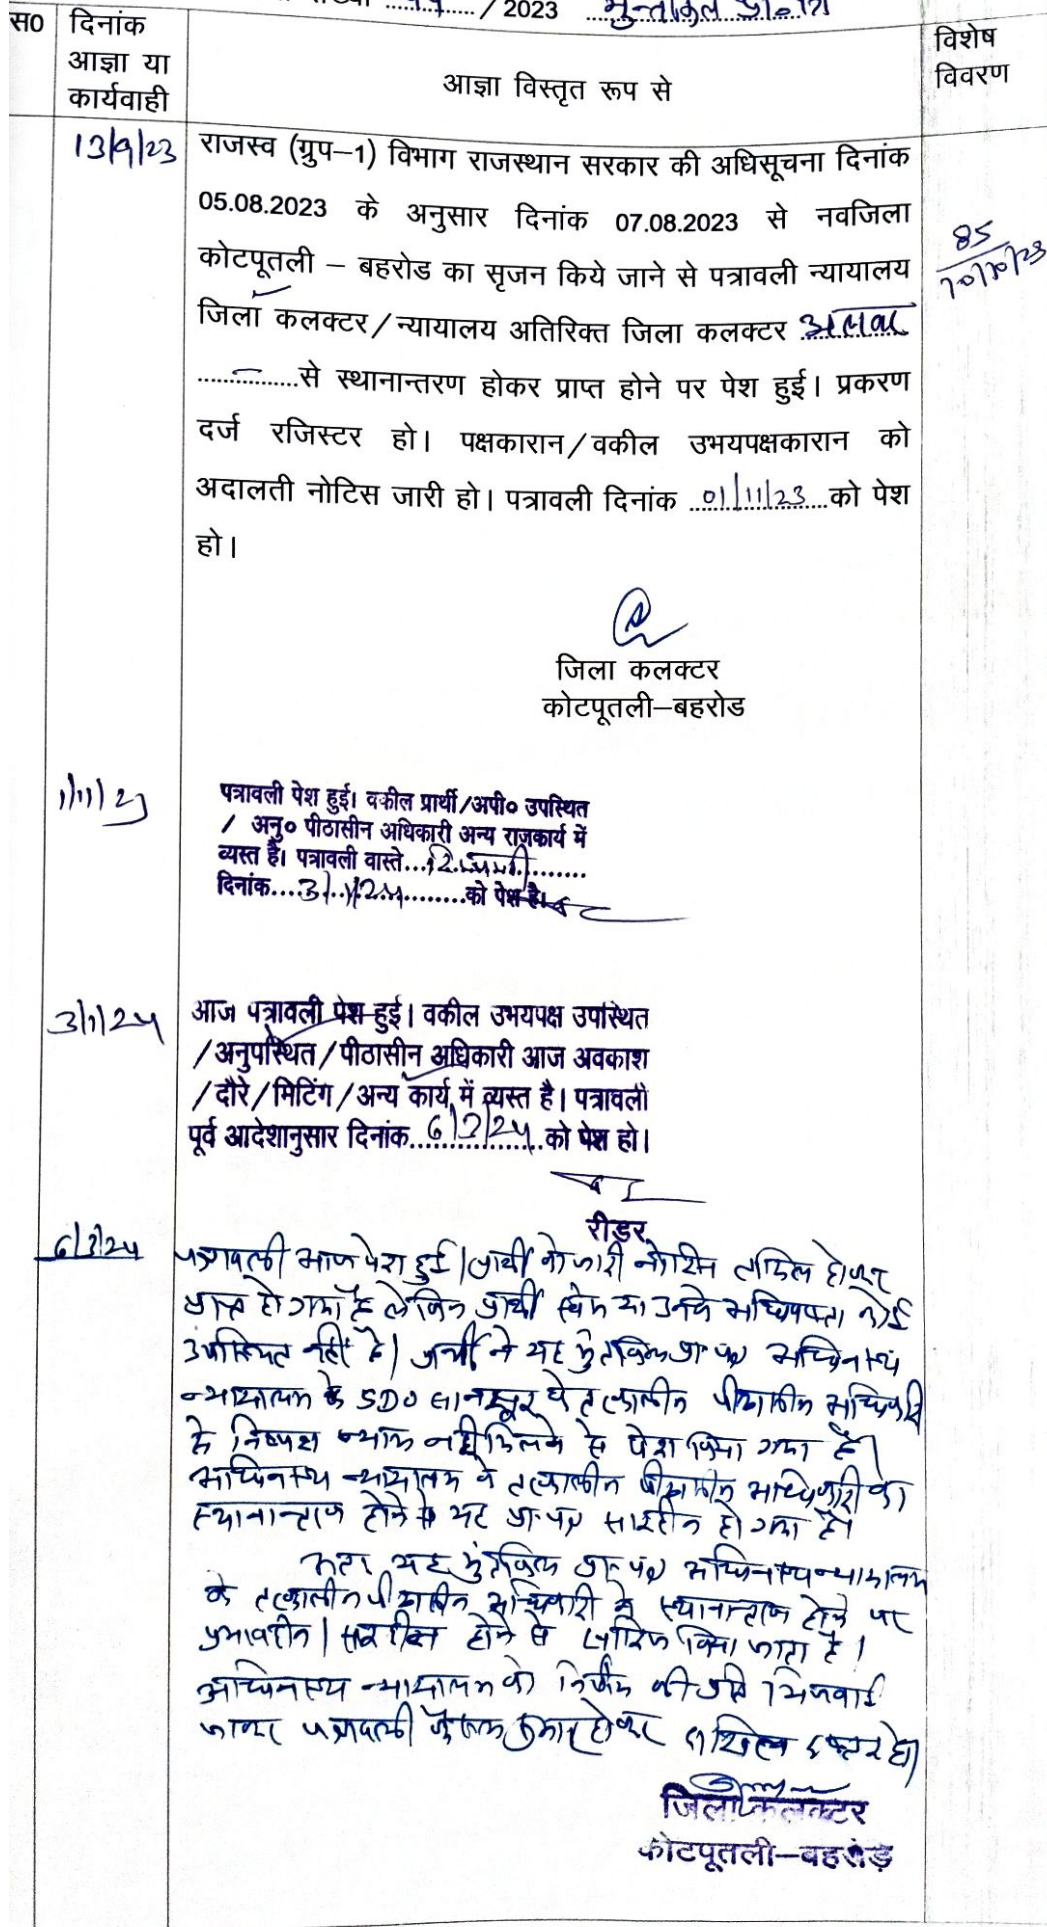 / 2023 मुन्तकिल प्रा०पत्र
स0
दिनांक
आज्ञा या
कार्यवाही
आज्ञा विस्तृत रूप से
विशेष
विवरण
13/9/23
राजस्व (ग्रुप–1) विभाग राजस्थान सरकार की अधिसूचना दिनांक
05.08.2023 के अनुसार दिनांक 07.08.2023 से नवजिला
कोटपूतली – बहरोड का सृजन किये जाने से पत्रावली न्यायालय
जिला कलक्टर/न्यायालय अतिरिक्त जिला कलक्टर अलवर
...............से स्थानान्तरण होकर प्राप्त होने पर पेश हुई। प्रकरण
दर्ज रजिस्टर हो। पक्षकारान/वकील उभयपक्षकारान को
अदालती नोटिस जारी हो। पत्रावली दिनांक 01/11/23 को पेश
हो।
85
10/10/23
जिला कलक्टर
कोटपूतली–बहरोड
1/11/23
पत्रावली पेश हुई। वकील प्रार्थी/अपी० उपस्थित
/ अनु० पीठासीन अधिकारी अन्य राजकार्य में
व्यस्त है। पत्रावली वास्ते
दिनांक....3/1/24.........को पेश है।
3/1/24
आज पत्रावली पेश हुई। वकील उभयपक्ष उपस्थित
/अनुपस्थित/पीठासीन अधिकारी आज अवकाश
/दौरे/मिटिंग/अन्य कार्य में व्यस्त है। पत्रावली
पूर्व आदेशानुसार दिनांक...6/3/24...को पेश हो।
रीडर
6/3/24
पत्रावली आज पेश हुई। प्रार्थी को जारी नोटिस तामिल होकर
प्राप्त हो गया है लेकिन प्रार्थी स्वयं या उनके अधिवक्ता कोई
उपस्थित नहीं है। प्रार्थी ने यह मुंतकिल प्रा० पत्र अधिनस्थ
न्यायालय के SDO बानसूर के तत्कालीन पीठासीन अधिकारी
से निष्पक्ष न्याय नहीं मिलने से पेश किया गया है।
अधिनस्थ न्यायालय के तत्कालीन पीठासीन अधिकारी का
स्थानान्तरण होने से यह प्रा० पत्र सारहीन हो गया है।
अतः यह मुंतकिल प्रा० पत्र अधिनस्थ न्यायालय
के तत्कालीन पीठासीन अधिकारी के स्थानान्तरण होने पर
प्रभावहीन/सारहीन होने से खारिज किया जाता है।
अधिनस्थ न्यायालय को निर्णय की प्रति भिजवाई
जाकर पत्रावली फैसल शुमार होकर दाखिल दफ्तर हो।
जिला कलक्टर
कोटपूतली–बहरोड़